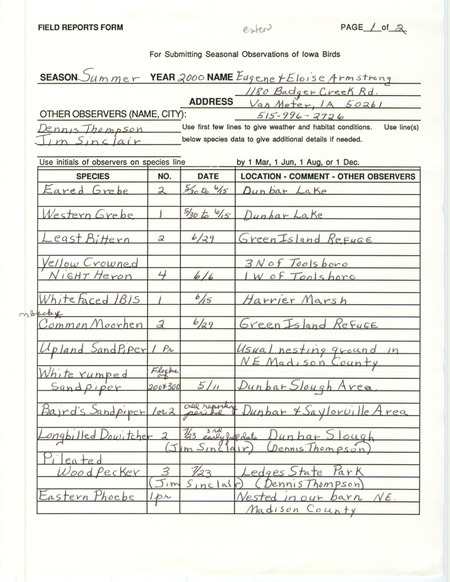 FIELD REPORTS FORM enter PAGE 1 of 2
For Submitting Seasonal Observations of Iowa Birds
SEASON Summer YEAR 2000 NAME Eugene & Eloise Armstrong
1180 Badger Creek Rd.
ADDRESS Van Meter, IA 50261
OTHER OBSERVERS (NAME, CITY): 515-996-2726
Dennis Thompson Use first few lines to give weather and habitat conditions. Use line(s)
Jim Sinclair below species data to give additional details if needed.
Use initials of observers on species line by 1 Mar, 1 Jun, 1 Aug, or 1 Dec.
SPECIES NO. DATE LOCATION - COMMENT - OTHER OBSERVERS
Eared Grebe 2 5/30 to 6/15 Dunbar Lake
Western Grebe 1 5/30 to 6/15 Dunbar Lake
Least Bittern 2 6/29 Green Island Refuge
Yellow Crowned 3 N of Toolsboro
Night Heron 4 6/6 1 W of Toolsboro
White Faced IBIS 1 6/15 Harrier Marsh
Common Moorhen 2 6/29 Green Island Refuge
Upland SandPiper 1 Pr Usual nesting ground in
NE Madison County
White rumped Flocks of
Sandpiper 200 & 300 5/11 Dunbar Slough Area
Baird's Sandpiper 1 or 2 all reporting period Dunbar & Saylorville Area
Longbilled Dowitcher 2 7/23 3rd early date Dunbar Slough
(Jim Sinclair) (Dennis Thompson)
Pileated
Woodpecker 3 7/23 Ledges State Park
(Jim Sinclair) (Dennis Thompson)
Eastern Phoebe 1 pr Nested in our barn NE.
Madison County